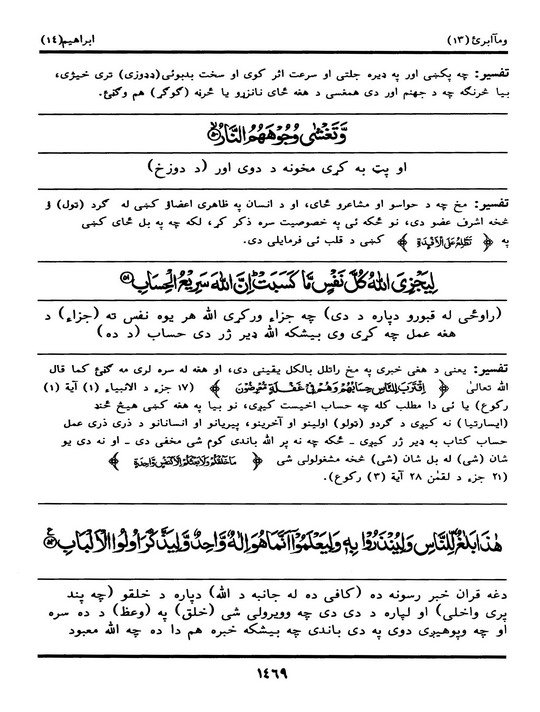 ومآابرئ(١٣) ابراهيم(١٤)
تفسير: چه پکښې اور په ډیره جلتۍ او سرعت اثر کوي او سخت بدبوئي(ډډوزي) ترې خیژي،
بیا څرنګه چه د جهنم اور دی همغسې د هغه ځای نانزړو یا څرنه (ګوګړ) هم وګڼئ.
وَّتَغْشٰى وُجُوْهَهُمُ النَّارُ ۝٥٠
او پټ به کړي مخونه د دوی اور (د دوزخ)
تفسير: مخ چه د حواسو او مشاعرو ځای، او د انسان په ظاهري اعضاؤ کښې له ګرد (تول) ؤ
څخه اشرف عضو دی، نو ځکه ئې په خصوصیت سره ذکر کړ، لکه چه په بل ځای کښې
په ﴿ تَطَّلِعُ عَلَى الْاَفْئِدَةِ ﴾ کښې د قلب ئې فرمایلي دي.
لِيَجْزِيَ اللّٰهُ كُلَّ نَفْسٍ مَّا كَسَبَتْ ۭ اِنَّ اللّٰهَ سَرِيْعُ الْحِسَابِ ۝٥١
(راوځي له قبورو دپاره د دې) چه جزاء ورکړي الله هر یوه نفس ته (جزاء) د
هغه عمل چه کړی وي بیشکه الله ډیر ژر دی حساب (د ده)
تفسير: یعنې د هغې خبرې په مخ راتلل بالکل یقیني دي، او هغه له سره لرې مه ګڼئ کما قال
الله تعالیٰ ﴿ اِقْتَرَبَ لِلنَّاسِ حِسَابُهُمْ وَهُمْ فِيْ غَفْلَةٍ مُّعْرِضُوْنَ ﴾ (١٧ جزء د الانبیاء (١) آیة (١)
رکوع) یا ئې دا مطلب کله چه حساب اخیست کیږي، نو بیا په هغه کښې هیڅ ځنډ
(ایسارتیا) نه کیږي د ګردو (تولو) اولینو او آخرینو، پیریانو او انسانانو د ذرې ذرې عمل
حساب کتاب به ډیر ژر کیږي ـ ځکه چه نه پر الله باندې کوم شی مخفي دی ـ او نه دی یو
شان (شی) له بل شان (شی) څخه مشغولولی شي ﴿ مَا خَلْقُكُمْ وَلَا بَعْثُكُمْ اِلَّا كَنَفْسٍ وَّاحِدَةٍ ﴾
(٢١ جزء د لقمٰن ٢٨ آیة (٣) رکوع).
هٰذَا بَلٰغٌ لِّلنَّاسِ وَلِيُنْذَرُوْا بِهٖ وَلِيَعْلَمُوْٓا اَنَّمَا هُوَ اِلٰهٌ وَّاحِدٌ وَّلِيَذَّكَّرَ اُولُوا الْاَلْبَابِ ۝٥٢
دغه قران خبر رسونه ده (کافي ده له جانبه د الله) دپاره د خلقو (چه پند
پرې واخلي) او لپاره د دې چه وویرولی شي (خلق) په (وعظ) د ده سره
او چه وپوهیږي دوی په دې باندې چه بیشکه خبره هم دا ده چه الله معبود
١٤٦٩